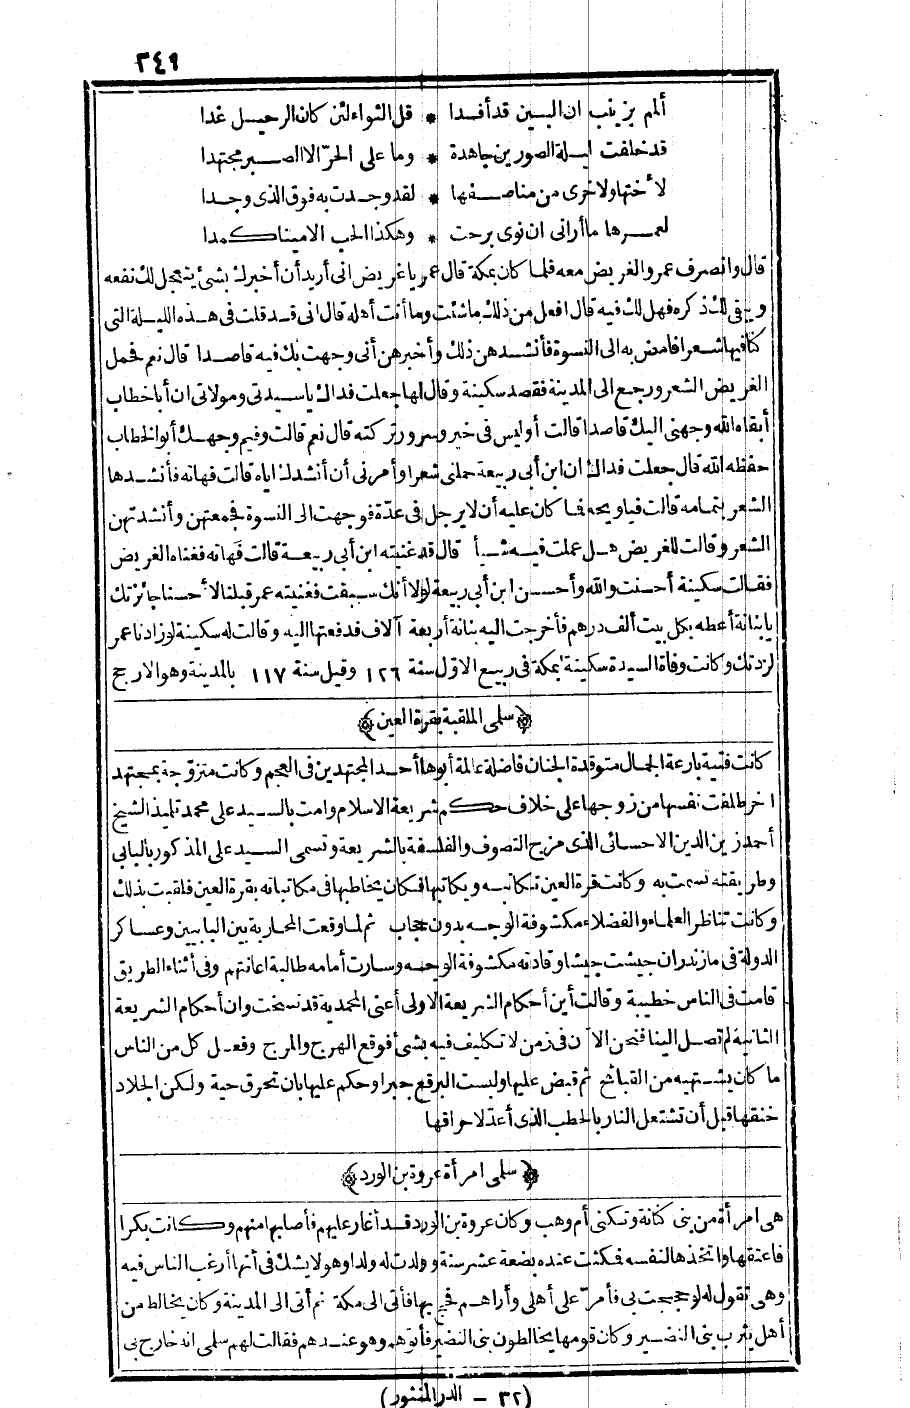 ٢٤٩
ألمم بزينب ان البين قد أفدا * قل الثواء لئن كان الرحيل غدا
قد حلفت ليلة الصورين جاهدة * وما على الحرّ الا الصبر مجتهدا
لأختها ولأخرى من مناصفها * لقد وجدت به فوق الذى وجدا
لعمرها ما أرانى ان نوى برحت * وهكذا الحب الا ميتا كمدا
قال وانصرف عمر والغريض معه فلما كان بمكة قال عمر يا غريض انى أريد أن أخبرك بشئ يتعجل لك نفعه
ويبقى لك ذكره فهل لك فيه قال افعل من ذلك ما شئت وما أنت أهله قال انى قد قلت فى هذه الليلة التى
كنا فيها شعرا فامض به الى النسوة فأنشدهن ذلك وأخبرهن أنى وجهت بك فيه قاصدا قال نعم فحمل
الغريض الشعر ورجع الى المدينة فقصد سكينة وقال لها جعلت فداك يا سيدتى ومولاتى ان أبا خطاب
أبقاه الله وجهنى اليك قاصدا قالت أوليس فى خير وسرور تركته قال نعم قالت وفيم وجهك أبو الخطاب
حفظه الله قال جعلت فداك ان ابن أبى ربيعة حملنى شعرا وأمرنى أن أنشدك اياه قالت فهاته فأنشدها
الشعر بتمامه قالت فياويحه فما كان عليه أن لا يرحل فى غدّ فوجهت الى النسوة فجمعتهن وأنشدتهن
الشعر وقالت للغريض هل عملت فيه شيأ قال قد غنيته ابن أبى ربيعة قالت فهاته فغناه الغريض
فقالت سكينة أحسنت والله وأحسن ابن أبى ربيعة لولا أنك سبقت فغنيته عمر قبلنا لأحسنا جائزتك
يا بنانة أعطه بكل بيت ألف درهم فأخرجت اليه بنانة أربعة آلاف فدفعتها اليه وقالت له سكينة لو زادنا عمر
لزدتك وكانت وفاة السيدة سكينة بمكة فى ربيع الاوّل سنة ١٢٦ وقيل سنة ١١٧ بالمدينة وهو الارجح
﴿سلمى الملقبة بقرة العين﴾
كانت فتية بارعة الجمال متوقدة الجنان فاضلة عالمة أبوها أحد المجتهدين فى العجم وكانت متزوّجة بمجتهد
اخر طلقت نفسها من زوجها على خلاف حكم شريعة الاسلام وامت بالسيد على محمد تلميذ الشيخ
أحمد زين الدين الاحسائى الذى مزج التصوف والفلسفة بالشريعة وتسمى السيد على المذكور بالبابى
وطريقته تسمت به وكانت قرة العين تكاتبه ويكاتبها فكان يخاطبها فى مكاتباته بقرة العين فلقبت بذلك
وكانت تناظر العلماء والفضلاء مكشوفة الوجه بدون حجاب ثم لما وقعت المحاربة بين البابيين وعساكر
الدولة فى مازندران جيشت جيشا وقادته مكشوفة الوجه وسارت أمامه طالبة اعانتهم وفى أثناء الطريق
قامت فى الناس خطيبة وقالت أين أحكام الشريعة الاولى أعنى المحمدية قد نسخت وان أحكام الشريعة
الثانية لم تصل الينا فنحن الآن فى زمن لا تكليف فيه بشئ فوقع الهرج والمرج وفعل كل من الناس
ما كان يشتهيه من القبائح ثم قبض عليها ولبست البرقع جبرا وحكم عليها بان تحرق حية ولكن الجلاد
خنقها قبل أن تشتعل النار بالحطب الذى أعد لاحراقها
﴿سلمى امرأة عروة بن الورد﴾
هى امرأة من بنى كنانة وتكنى أم وهب وكان عروة بن الورد قد أغار عليهم فأصابها منهم وكانت بكرا
فاعتقها واتخذها لنفسه فمكثت عنده بضعة عشر سنة وولدت له ولدا وهو لا يشك فى أنها أرغب الناس فيه
وهى تقول له لو حججت بى فأمرّ على أهلى وأراهم فحج بها فأتى الى مكة ثم أتى الى المدينة وكان يخالط من
أهل يثرب بنى النضير وكان قومها يخالطون بنى النضير فأتوهم وهو عندهم فقالت لهم سلمى انه خارج بى
(٣٢ - الدر المنثور)